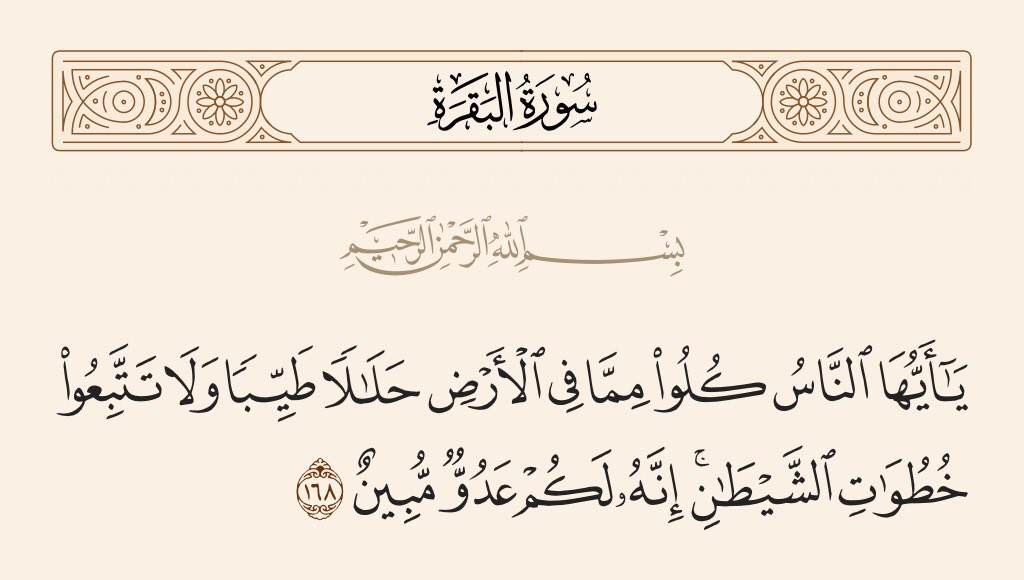 سُورَةُ البَقَرَةِ
بِسْمِ ٱللَّهِ ٱلرَّحْمَٰنِ ٱلرَّحِيمِ
يَـٰٓأَيُّهَا ٱلنَّاسُ كُلُوا۟ مِمَّا فِى ٱلْأَرْضِ حَلَـٰلًا طَيِّبًا وَلَا تَتَّبِعُوا۟
خُطُوَٰتِ ٱلشَّيْطَـٰنِ ۚ إِنَّهُۥ لَكُمْ عَدُوٌّ مُّبِينٌ ١٦٨